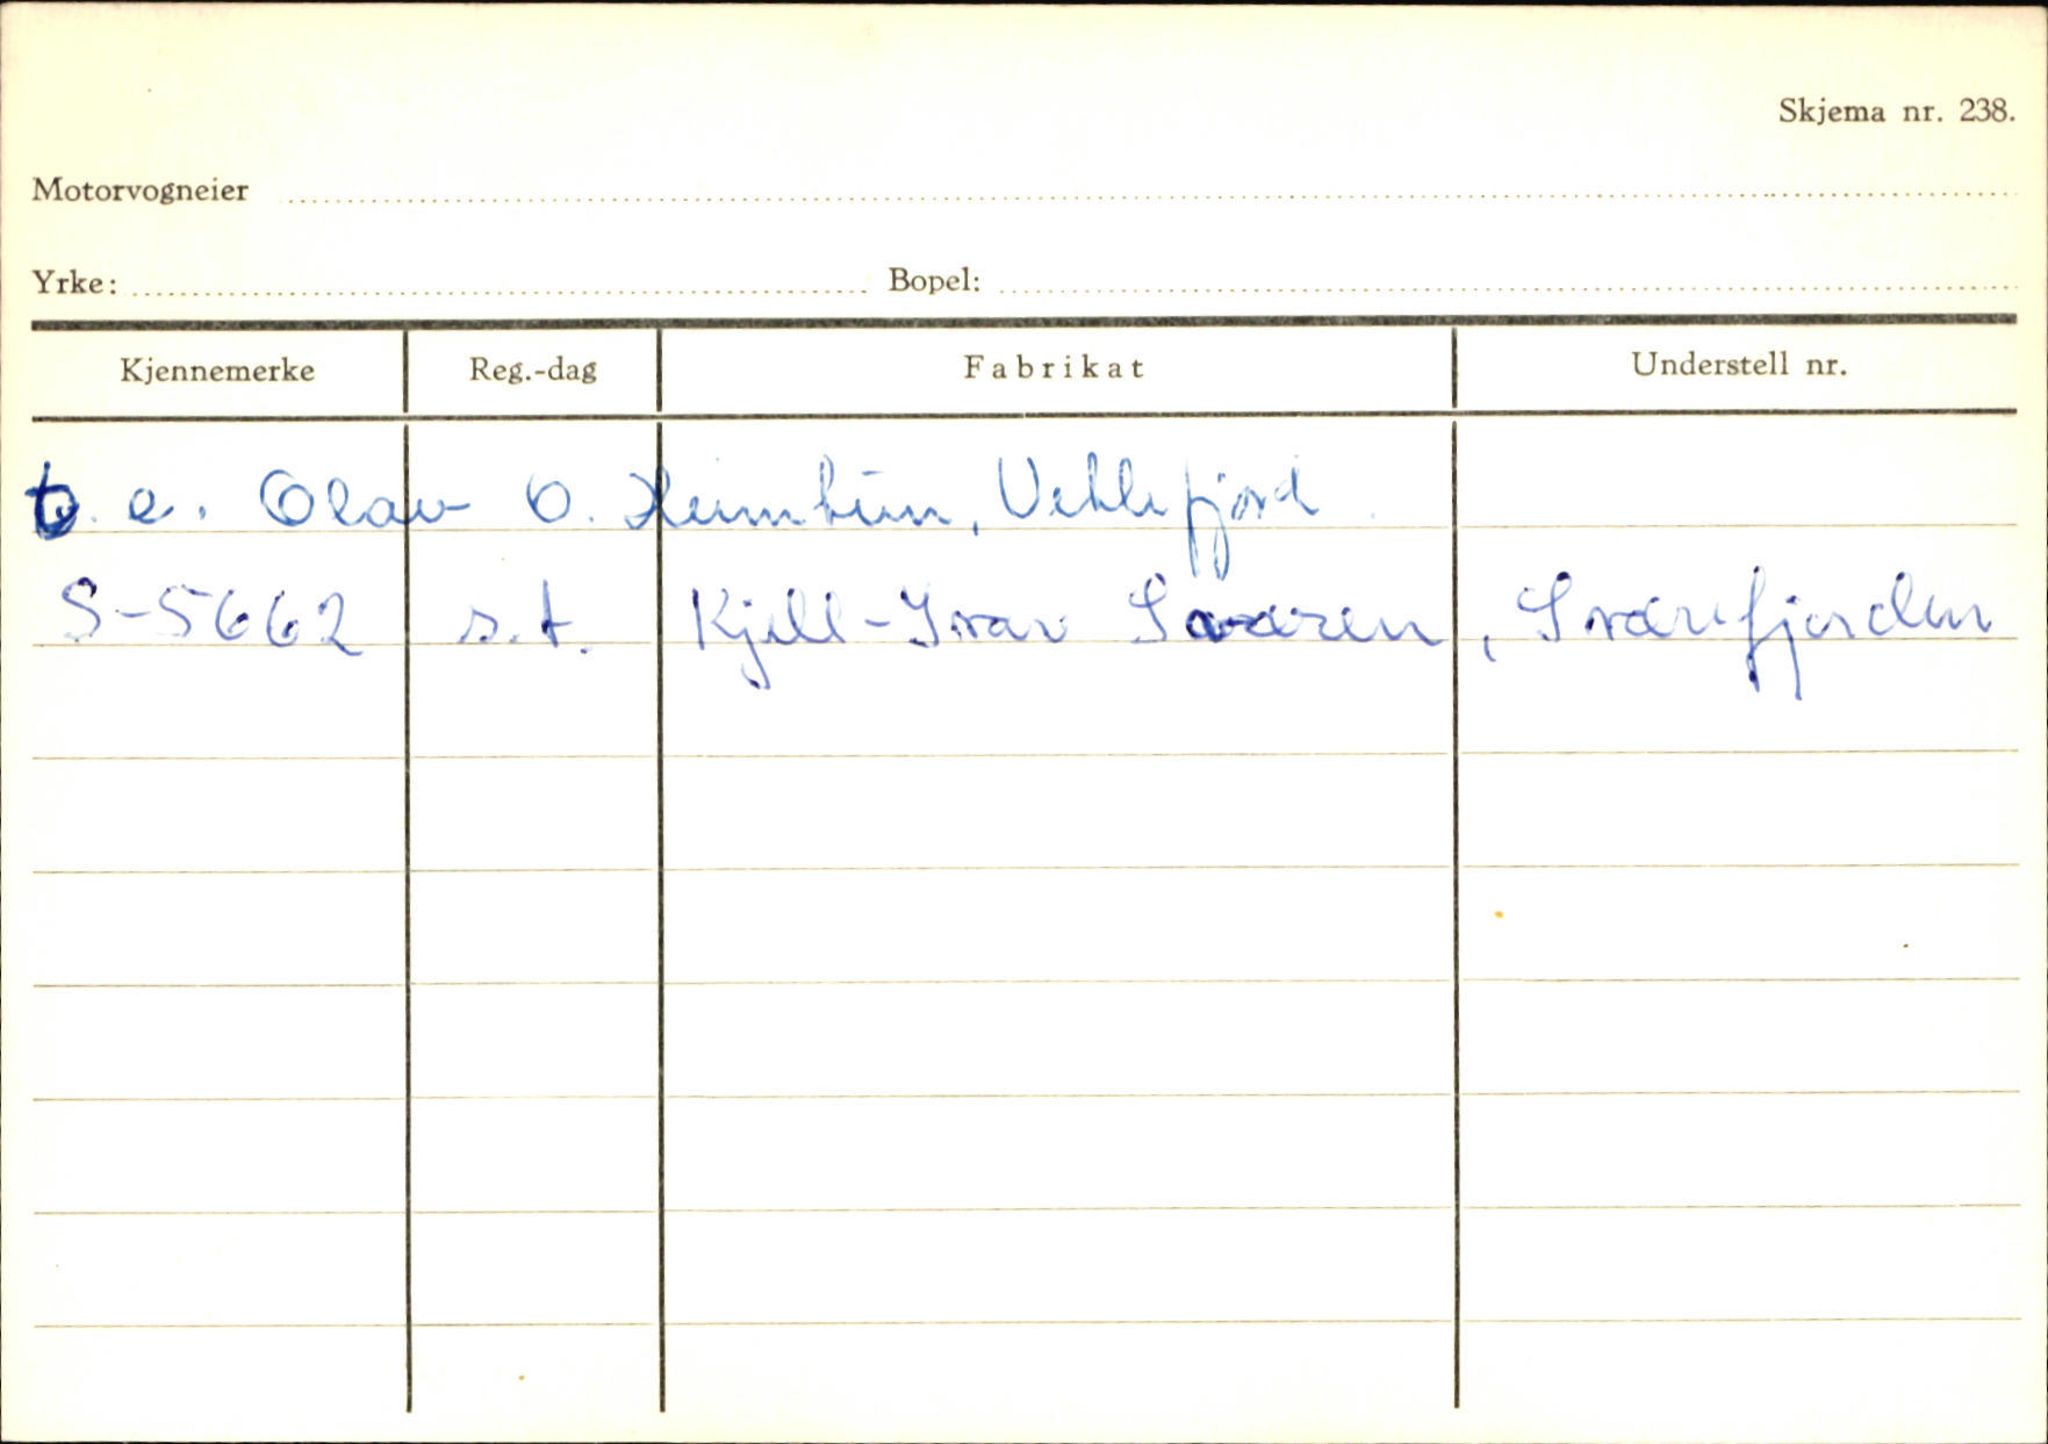 Skjema nr. 238.
Motorvogneier
Yrke: Bopel:
Kjennemerke Reg.-dag Fabrikat Understell nr.
e. Olav O. Heimtun, Vetlefjord
S-5662 s.t. Kjell-Ivar Sværen, Sværefjorden